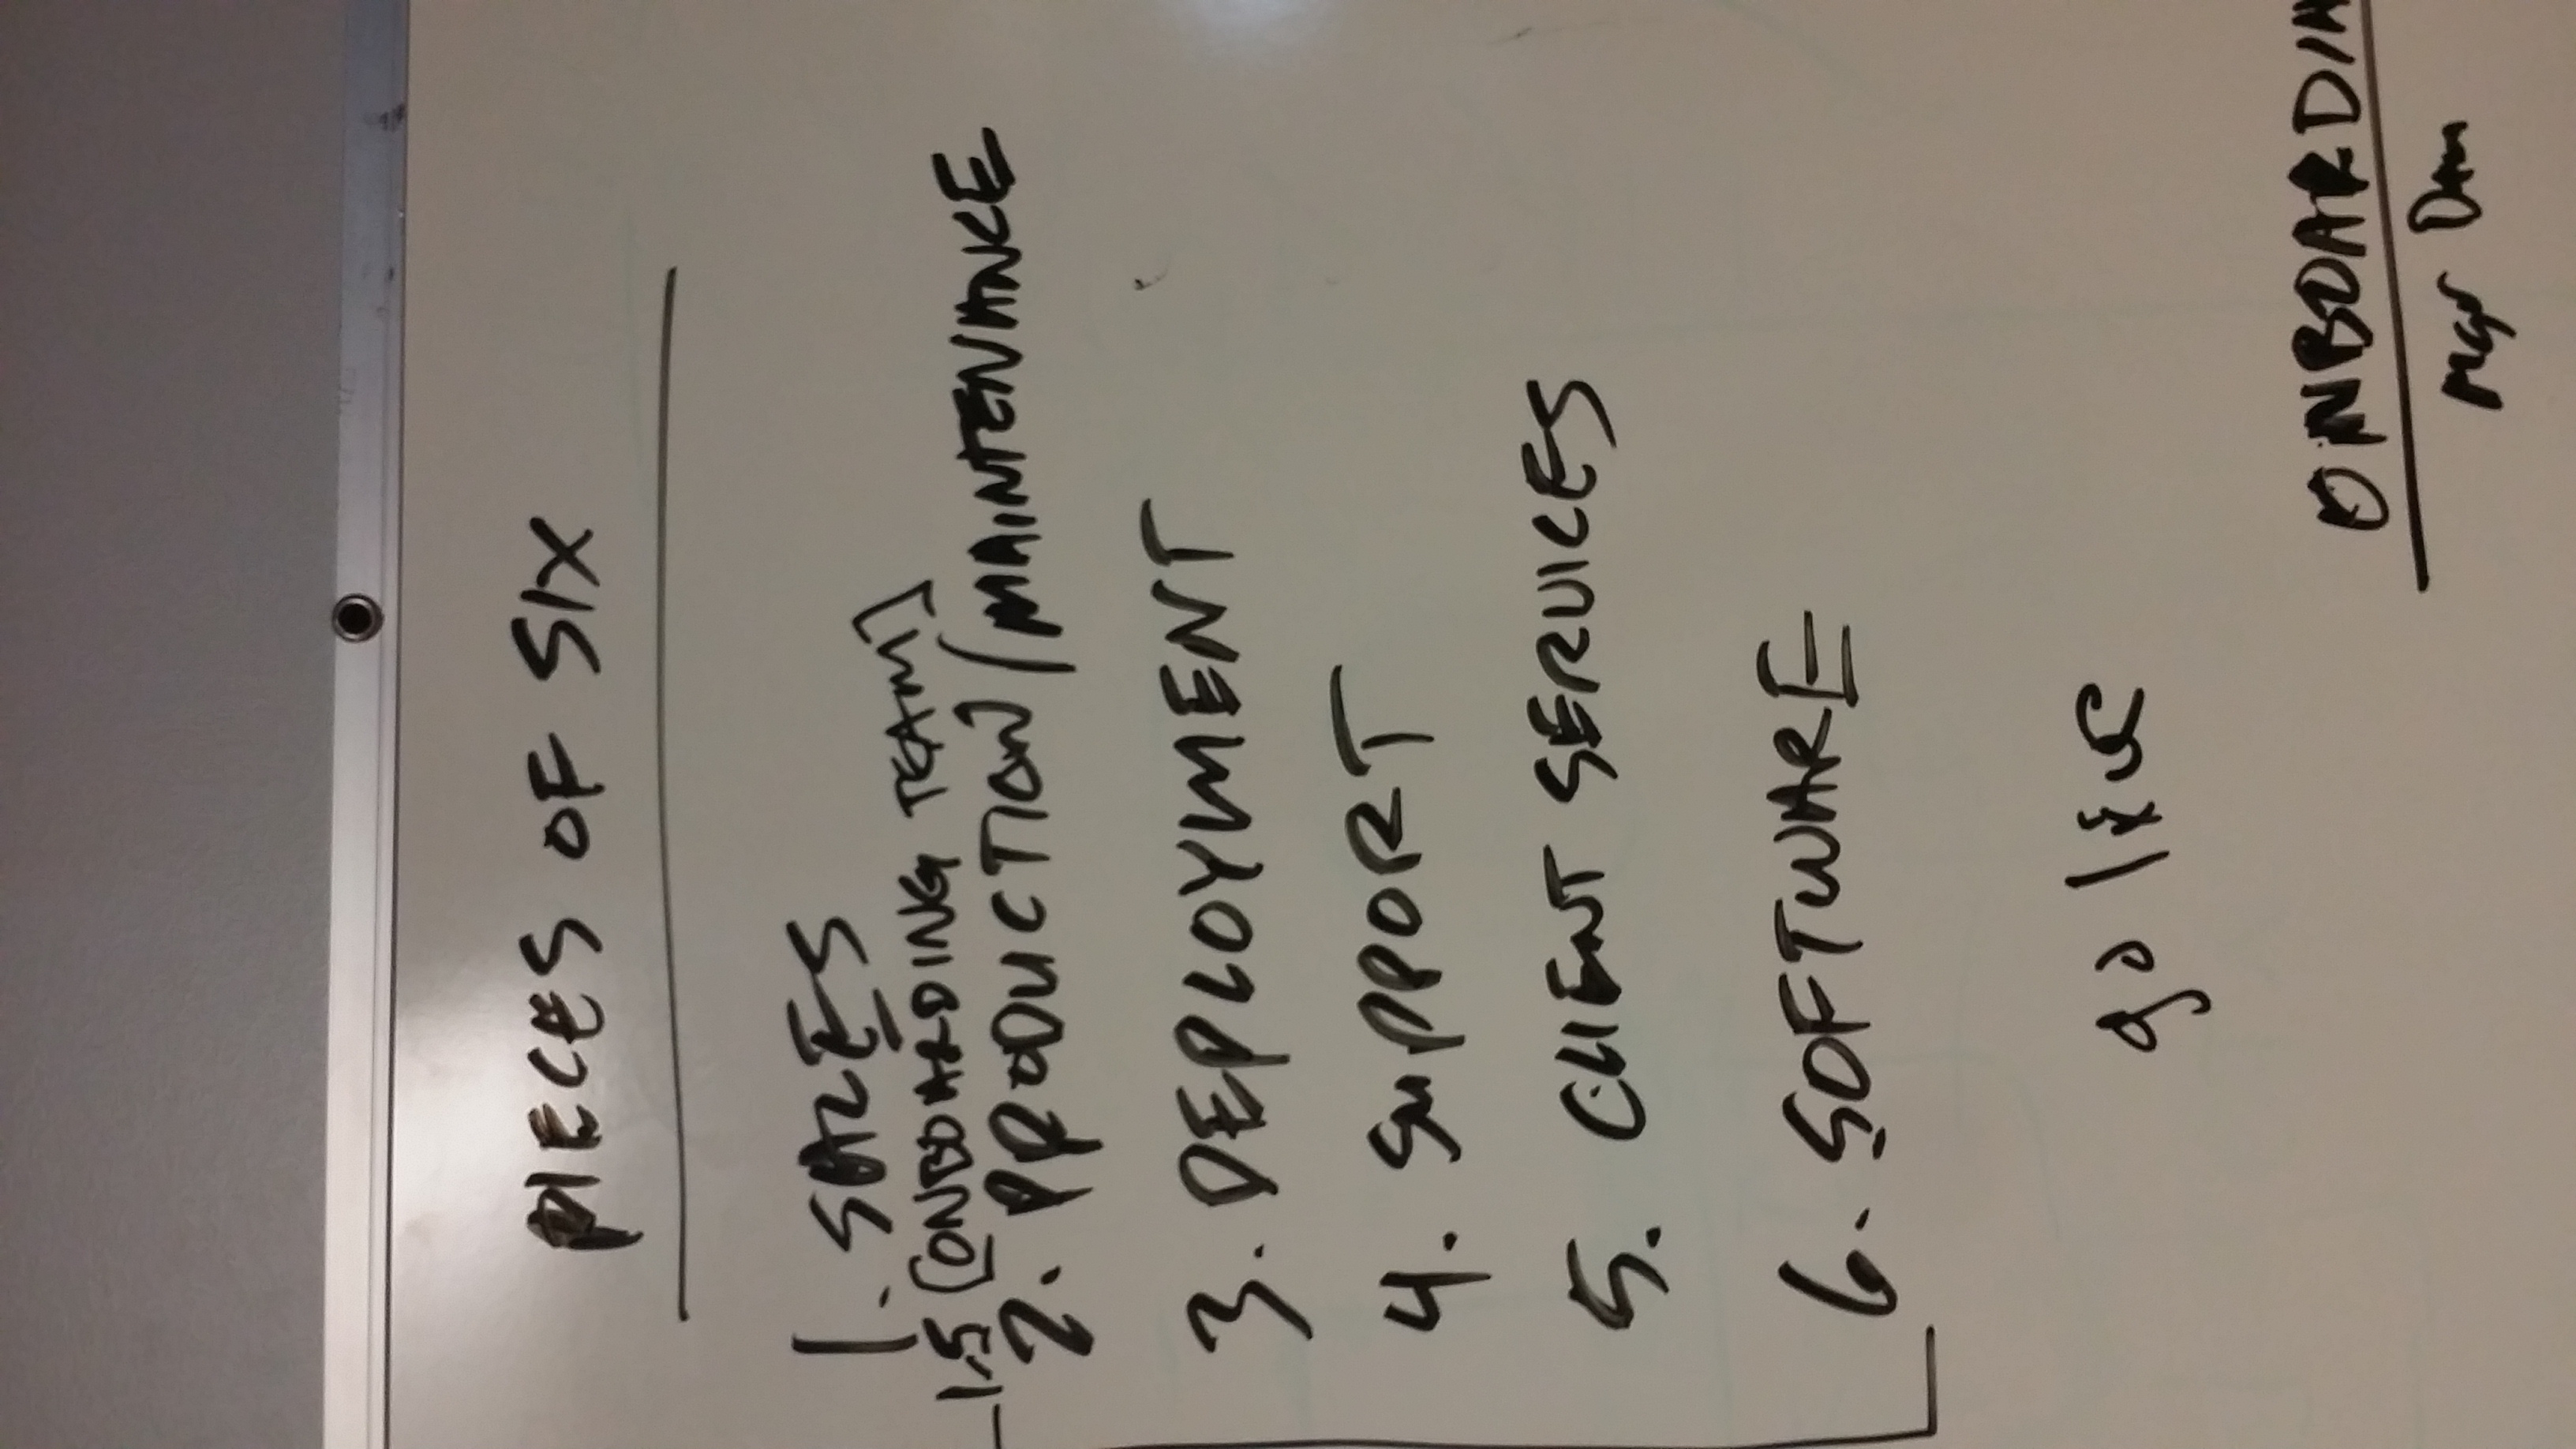 PIECES OF SIX
1. SALES
1.5 [ONBOARDING TEAM]
2. PRODUCTION/MAINTENANCE
3. DEPLOYMENT
4. SUPPORT
5. CLIENT SERVICES
6. SOFTWARE
go live
ONBOARDIN
Mgr Dan